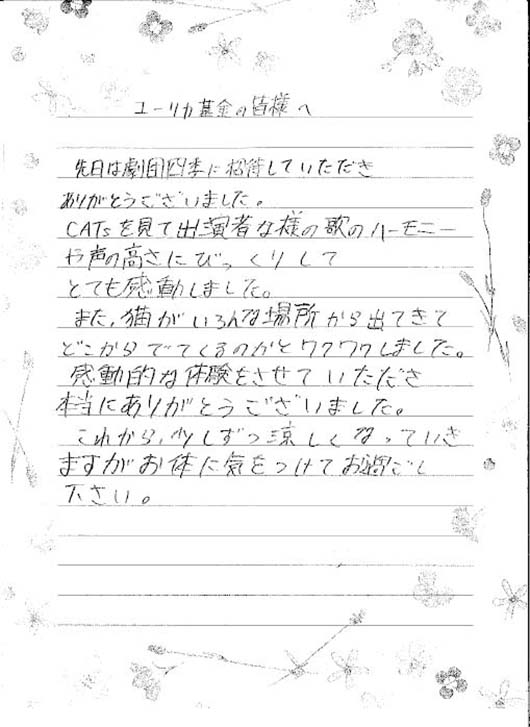 ユーリカ基金の皆様へ
先日は劇団四季に招待していただき
ありがとうございました。
CATsを見て出演者な様の歌のハーモニー
や声の高さにびっくりして
とても感動しました。
また、猫がいろんな場所から出てきて
どこからでてくるのかとワクワクしました。
感動的な体験をさせていただき
本当にありがとうございました。
これから、少しずつ涼しくなっていき
ますがお体に気をつけてお過ごし
下さい。